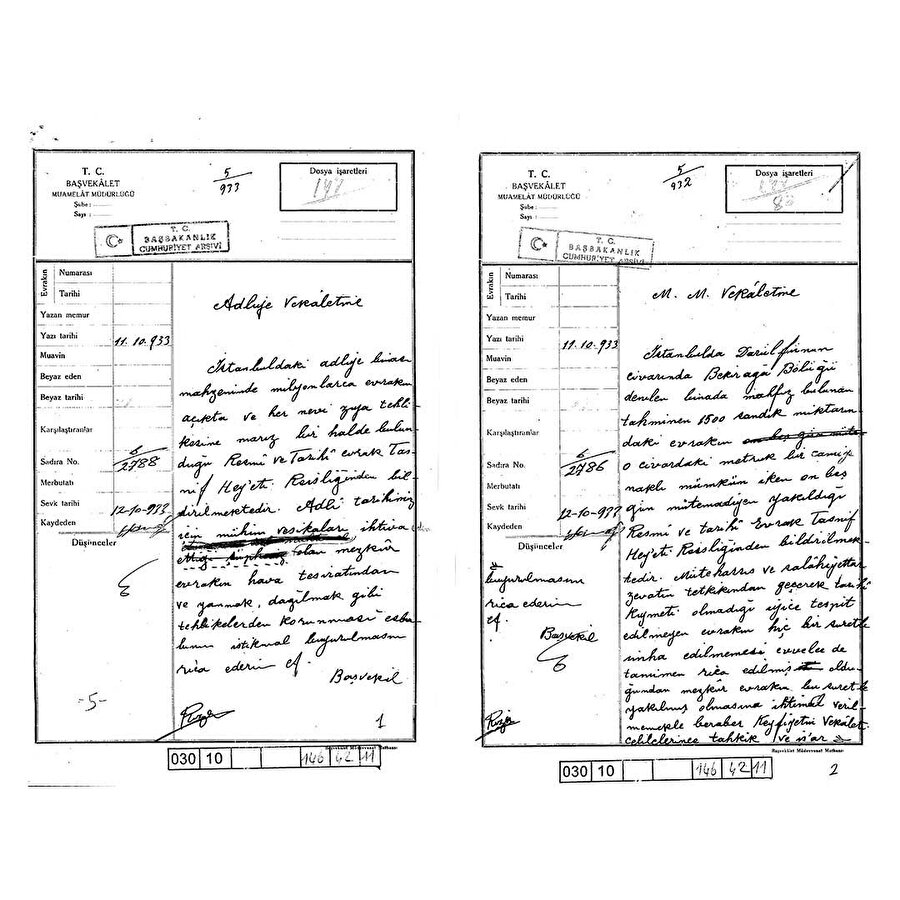 T. C.
BAŞVEKÂLET
MUAMELÂT MÜDÜRLÜĞÜ
Şube:
Sayı:
5/933
Dosya işaretleri
T. C.
BAŞBAKANLIK
CUMHURİYET ARŞİVİ
Evrakın
Numarası
Tarihi
Yazan memur
Yazı tarihi 11.10.933
Muavin
Beyaz eden
Beyaz tarihi
Karşılaştıranlar
Sadıra No. 6/2788
Merbutatı
Sevk tarihi 12-10-933
Kaydeden
Düşünceler
-5-
Adliye Vekâletine
İstanbuldaki adliye binası
mahzeninde milyonlarca evrakın
açıkta ve her nevi zıyaa tehli-
kesine maruz bir halde bulun
duğu Resmî ve Tarihî evrak Tas
nif Hey'eti Reisliğinden bil
dirilmektedir. Adlî tarihimiz
için mühim vesikaları ihtiva
olan mezkûr
evrakın hava tesiratından
ve yanmak, dağılmak gibi
tehlikelerden korunması esba
bının istikmal buyurulmasını
rica ederim ef.
Başvekil
1
Başvekâlet Müdevvenat Matbaası
030 10 146 42 11
T. C.
BAŞVEKÂLET
MUAMELÂT MÜDÜRLÜĞÜ
Şube:
Sayı:
5/932
Dosya işaretleri
T. C.
BAŞBAKANLIK
CUMHURİYET ARŞİVİ
Evrakın
Numarası
Tarihi
Yazan memur
Yazı tarihi 11.10.933
Muavin
Beyaz eden
Beyaz tarihi
Karşılaştıranlar
Sadıra No. 6/2786
Merbutatı
Sevk tarihi 12-10-933
Kaydeden
Düşünceler
buyurulmasını
rica ederim
ef.
Başvekil
M. M. Vekâletine
İstanbulda Darülfünun
civarında Bekirağa Bölüğü
denilen binada mahfuz bulunan
tahminen 1500 sandık miktarın
daki evrakın
o civardaki metruk bir camie
nakli mümkün iken on beş
gün mütemadiyen yakıldığı
Resmî ve tarihî Evrak Tasnif
Hey'eti Reisliğinden bildirilmek-
tedir. Mütehassıs ve salâhiyettar
zevatın tetkikından geçerek tarihî
kıymeti olmadığı iyice tespit
edilmeyen evrakın hiç bir suretle
imha edilmemesi evvelce de
tamimen rica edilmiş oldu-
ğundan mezkûr evrakın bu suretle
yakılmış olmasına ihtimal veril-
memekle beraber keyfiyetin Vekâlet
celilelerince tahkik ve iş'ar
Başvekâlet Müdevvenat Matbaası
030 10 146 42 11
2